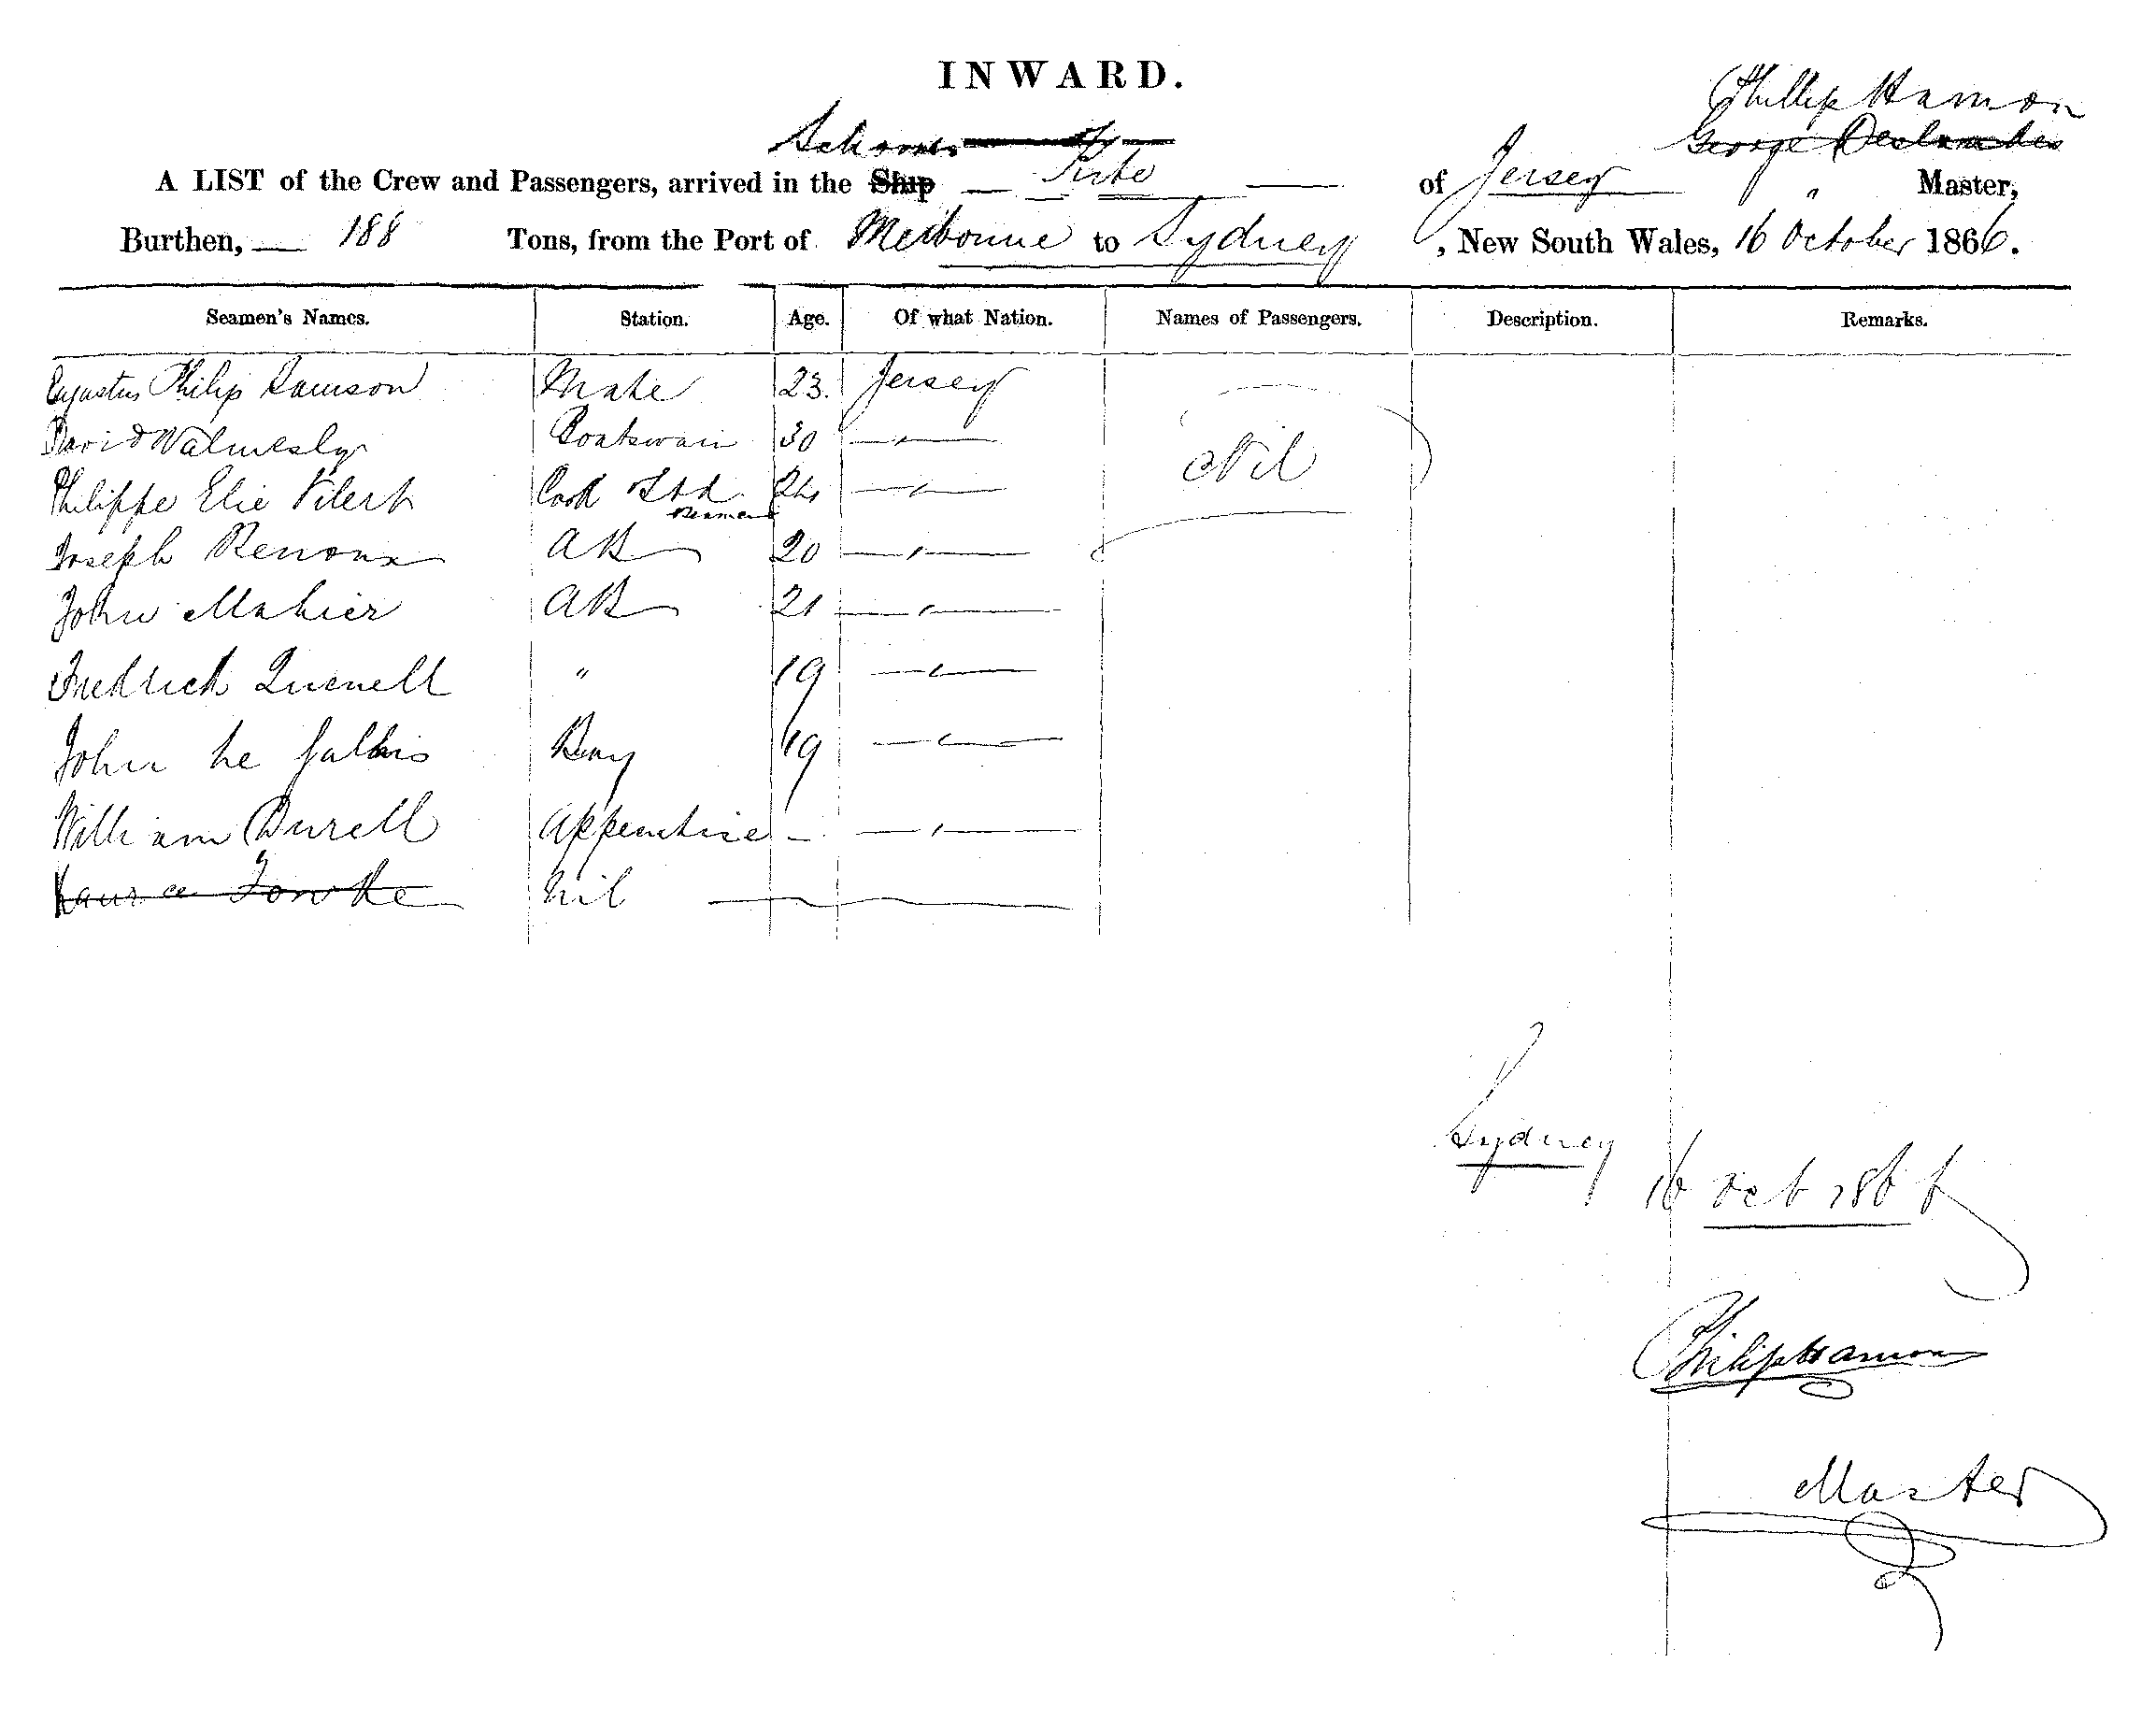 INWARD.
Phillip Hamon
Schooner
George Deslandes
A LIST of the Crew and Passengers, arrived in the Ship — Kate — of Jersey " Master,
Burthen, — 188 Tons, from the Port of Melbourne to Sydney, New South Wales, 16 October 1866.
Seamen's Names. Station. Age. Of what Nation. Names of Passengers. Description. Remarks.
Philip Samson Mate 23 Jersey
David Walmesly Boatswain 30 — " —
Nil
Philippe Elie Cook & Std 24 — " —
Seaman
Joseph Renoux AB 20 — " —
John Mahier AB 21 — " —
Fredrick Quenell " 19 — " —
John Le Boy 19 — " —
William Durell Appentice — — " —
Nil —
Sydney
16 Oct 1866
Philip Hamon
Master